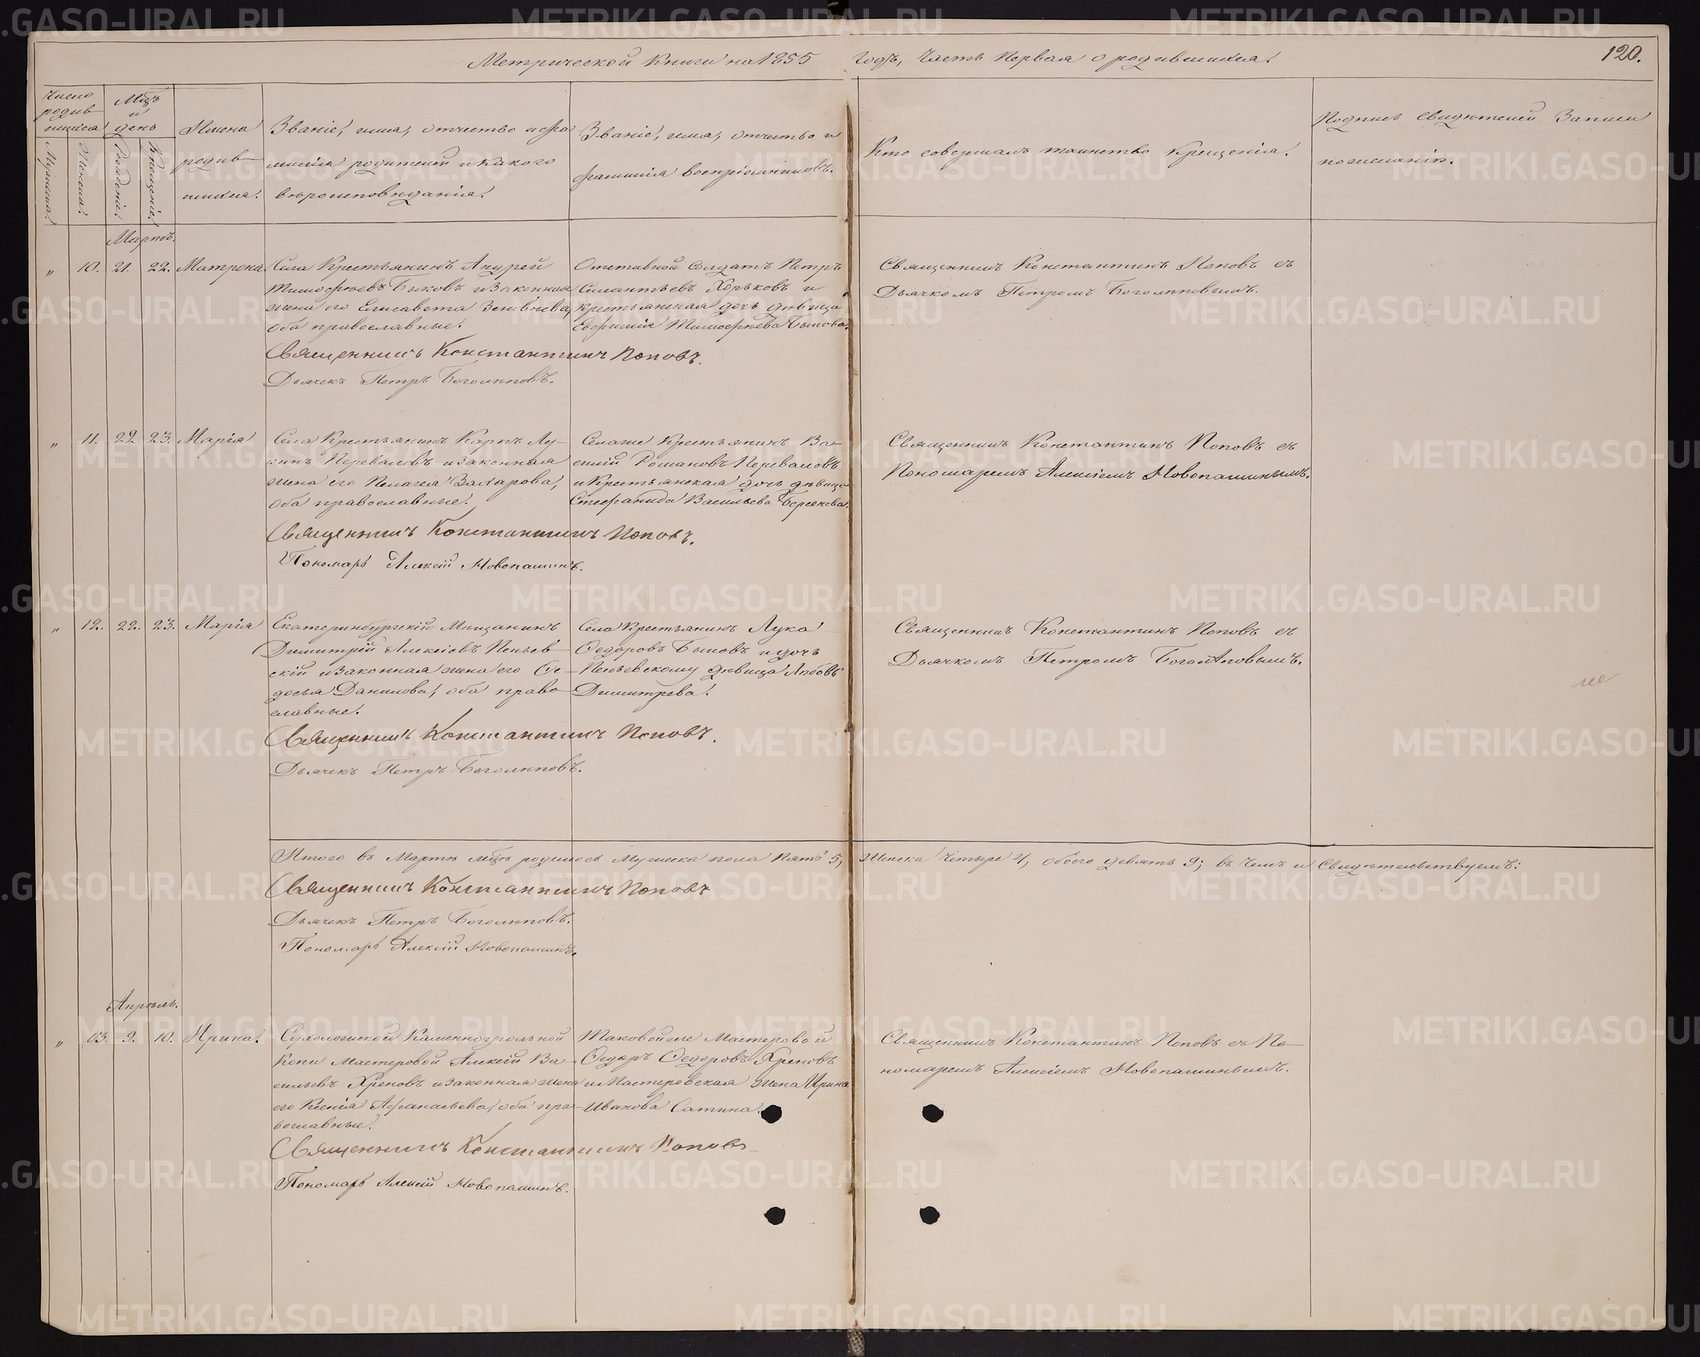 Метрической Книги на 1855 годъ, Часть Первая о родившихся.
120.
Число родившихся
Мѣсъ и день
Имена родившихся.
Званіе, имя, отчество и фамилія родителей и какого вѣроисповѣданія.
Званіе, имя, отчество и фамилія воспріемниковъ.
Кто совершалъ таинство крещенія.
Подпись свидѣтелей Записи по желанію.
Мужеска.
Женска.
Рожденія.
Крещенія.
Мартъ.
" 10. 21. 22. Матрона.
Села Крестьянинъ Андрей
Тимофѣевъ Быковъ и законная
жена его Елисавета
оба православные.
Отставной Солдатъ Петръ
Силантьевъ Хорьковъ и
крестьянская дочь дѣвица
Тимофѣева Быкова.
Священникъ Константинъ Поповъ съ
Дьячкомъ Петромъ Боголѣповымъ.
Священникъ Константинъ Поповъ.
Дьячекъ Петръ Боголѣповъ.
" 11. 22. 23. Марія
Села Крестьянинъ Карпъ Лу-
кинъ Переваловъ и законная
жена его Пелагея Захарова,
оба православные.
Селаже Крестьянинъ Ва-
силій Романовъ Переваловъ
и Крестьянская дочь дѣвица
Стефанида Васильева
Священникъ Константинъ Поповъ съ
Пономаремъ Алексіемъ Новопашинымъ.
Священникъ Константинъ Поповъ.
Пономарь Алексій Новопашинъ.
" 12. 22. 23. Марія
Екатеринбургскій Мѣщанинъ
Димитрій Алексіевъ Пеньев-
скій и законная жена его Ѳе-
досья Данилова, оба право-
славные.
Села Крестьянинъ Лука
Ѳедоровъ Быковъ и дочь
Пеньевскому дѣвица Любовь
Димитрева.
Священникъ Константинъ Поповъ съ
Дьячкомъ Петромъ Боголѣповымъ.
Священникъ Константинъ Поповъ.
Дьячекъ Петръ Боголѣповъ.
Итого въ Мартѣ мѣсѣ родилось Мужеска пола Пять 5, Женска Четыре 4, обоего девять 9; въ чемъ и Свидѣтельствуемъ:
Священникъ Константинъ Поповъ
Дьячекъ Петръ Боголѣповъ.
Пономарь Алексій Новопашинъ.
Апрѣль.
" 13. 9. 10. Ирина.
Сухоложской Каменноугольной
Копи Мастеровой Алексій Ва-
сильевъ Хреновъ и законная жена
его Ксенія Афанасьева, оба пра-
вославные.
Таковойже Мастеровой
Ѳедоръ Ѳедоровъ Хреновъ
и Мастеровская жена Ирина
Иванова Сатина.
Священникъ Константинъ Поповъ съ По-
номаремъ Алексіемъ Новопашинымъ.
Священникъ Константинъ Поповъ
Пономарь Алексій Новопашинъ.
METRIKI.GASO-URAL.RU